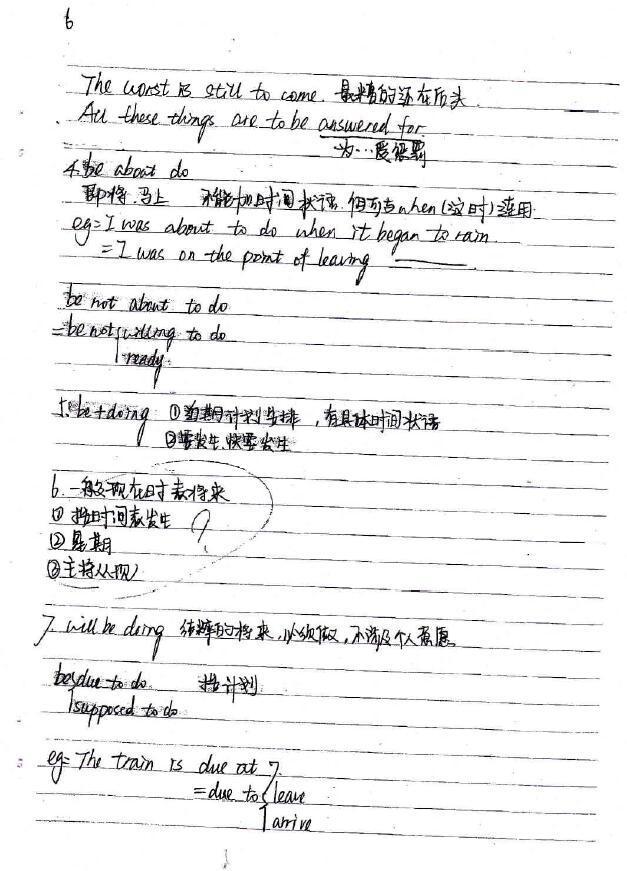 6
The worst is still to come. 最糟的还在后头.
All these things are to be answered for.
为…受惩罚
4. be about do
即将.马上 不能加时间状语.但可与when(这时)连用.
eg=I was about to do when it began to rain.
=I was on the point of leaving
be not about to do
=be not willing to do
ready.
5. be+doing ①近期计划安排 ,有具体时间状语
②要发生.快要发生
6. 一般现在时表将来
①按时间表发生 ?
②星期
③主将从现
7. will be doing 纯粹的将来,必须做,不涉及个人意愿.
be due to do 按计划
supposed to do
eg= The train is due at 7.
=due to leave
arrive